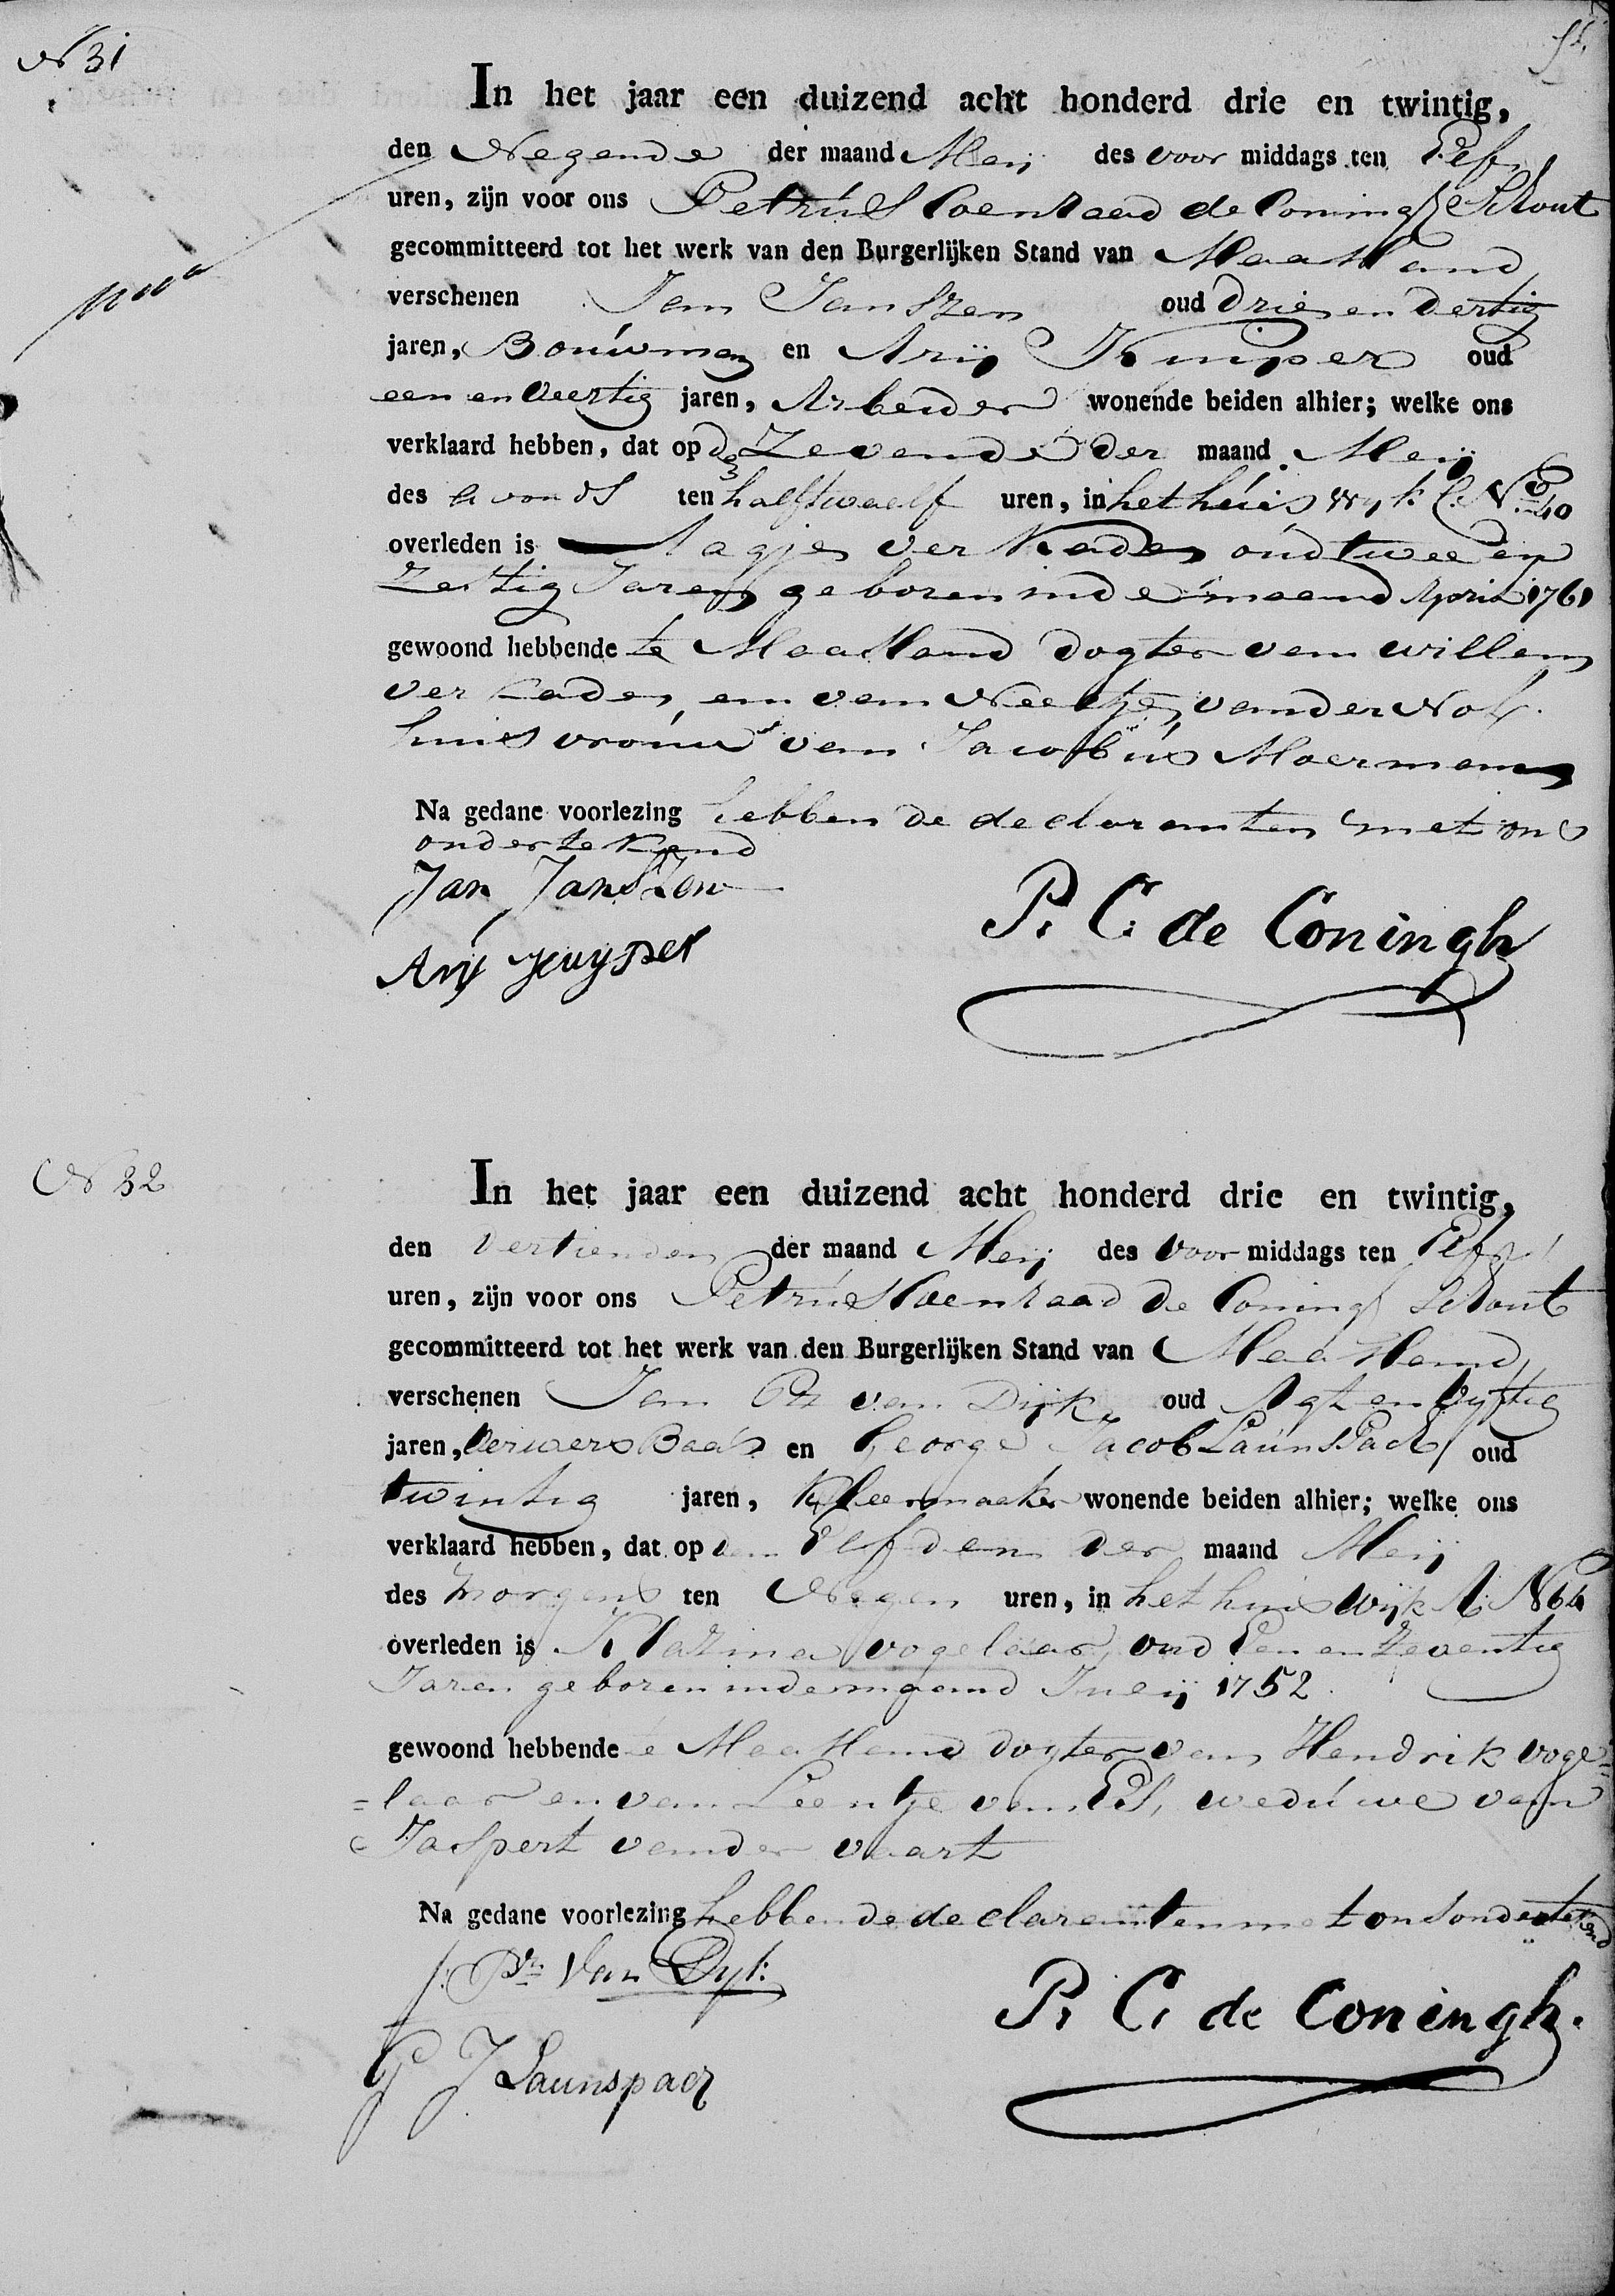 N 31
In het jaar een duizend acht honderd drie en twintig,
den Negende der maand Meij des voor middags ten Elf
uren, zijn voor ons Petrus Coenraad de Coningh Schout
gecommitteerd tot het werk van den Burgerlijken Stand van Maasland
verschenen Jan Janszen oud drie en dertig
jaren, Bouwman en Arij Kuijper oud
een en veertig jaren, Arbeider wonende beiden alhier; welke ons
verklaard hebben, dat op de Zevende der maand Meij
des avonds ten half twaelf uren, in het huis wyk C: No 40
overleden is Aagje ver Kade oud twee en
Zestig Jaren geboren in de maand April 1761
gewoond hebbende te Maasland dogter van willem
ver Kade, en van Neeltje van der Nol
huisvrouw van Jacobus Moerman
Na gedane voorlezing hebben de declaranten met ons
ondertekend
Jan Janszen
P. C. de Coningh
Arij Kuyper
N 32
In het jaar een duizend acht honderd drie en twintig,
den dertienden der maand Meij des voor middags ten Elf
uren, zijn voor ons Petrus Coenraad de Coningh Schout
gecommitteerd tot het werk van den Burgerlijken Stand van Maasland
verschenen Jan Pz van Dijk oud Agt en vyftig
jaren, Verwers Baas en George Jacob Launspach oud
twintig jaren, Kleermaker wonende beiden alhier; welke ons
verklaard hebben, dat op den Elfden der maand Meij
des morgens ten Negen uren, in het huis wijk A: N 64
overleden is Klazina vogelaar, oud Een en Zeventig
Jaren geboren in de maand Juny 1752
gewoond hebbende te Maasland dogter van Hendrik voge=
=laar en van Leentje van Es, weduwe van
Jaspert van der vaart
Na gedane voorlezing hebben de declaranten met ons ondertekend
J. Pz Van Dyk
P. C. de Coningh.
G J Launspach